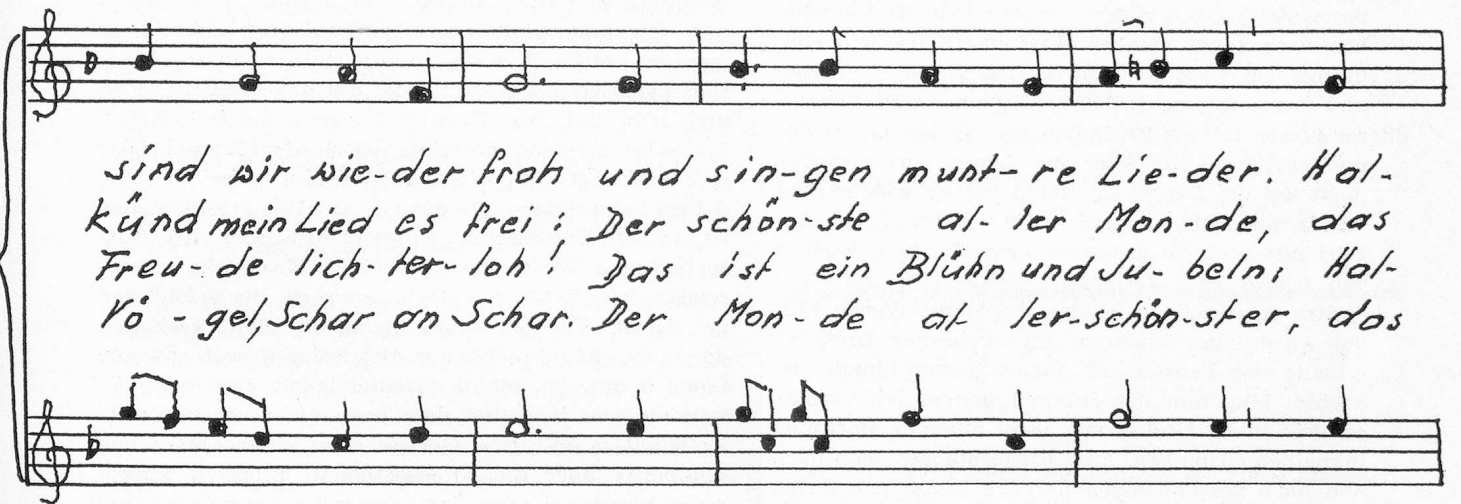 sind wir wie-der froh und sin-gen munt-re Lie-der. Hal-
künd mein Lied es frei: Der schön-ste al-ler Mon-de, das
Freu-de lich-ter-loh! Das ist ein Blühn und Ju-beln; Hal-
Vö-gel, Schar an Schar. Der Mon-de al-ler-schön-ster, das